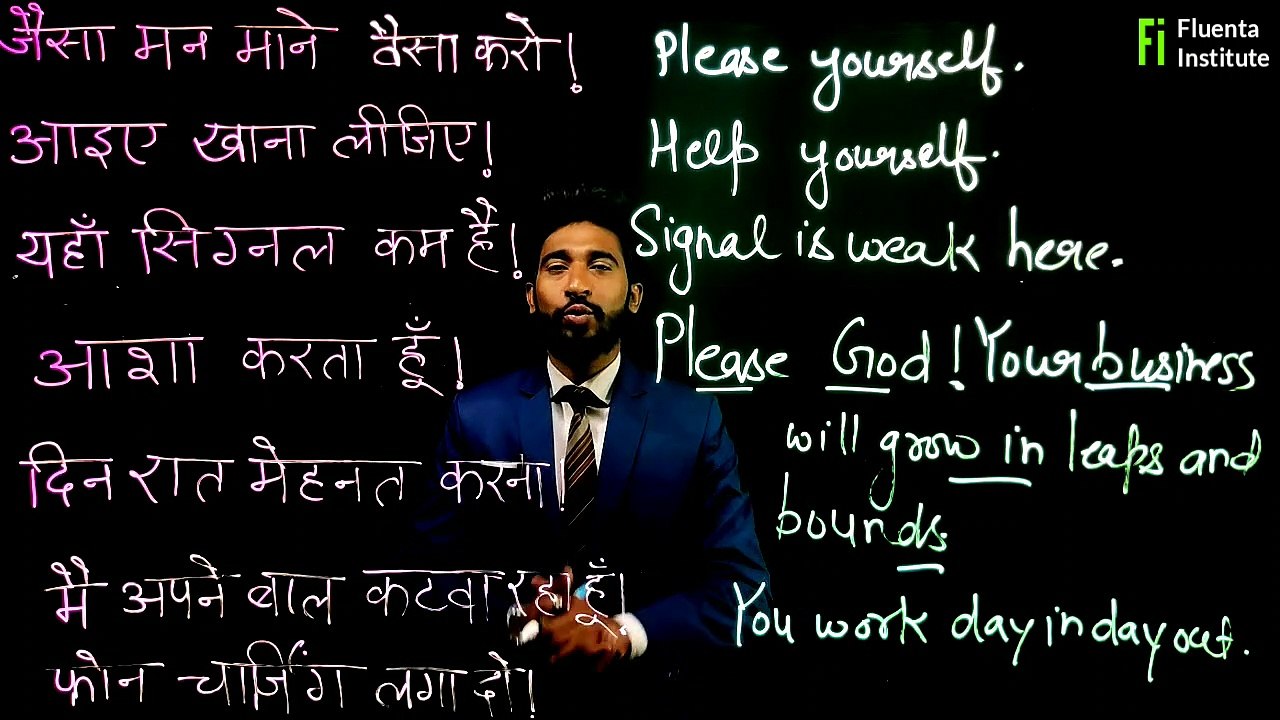 जैसा मन माने वैसा करो!
आइए खाना लीजिए!
यहाँ सिग्नल कम है!
आशा करता हूँ!
दिन रात मेहनत करना!
मै अपने बाल कटवा रहा हूँ!
फोन चार्जिंग लगा दो!
Please yourself.
Help yourself.
Signal is weak here.
Please God! Your business
will grow in leaps and
bounds.
You work day in day out.
Fi Fluenta
Institute